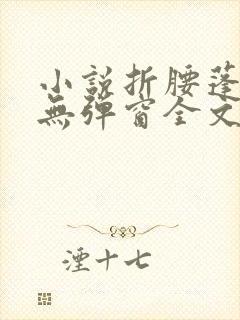 小説折腰蓬
無彈窗全文
湮十七